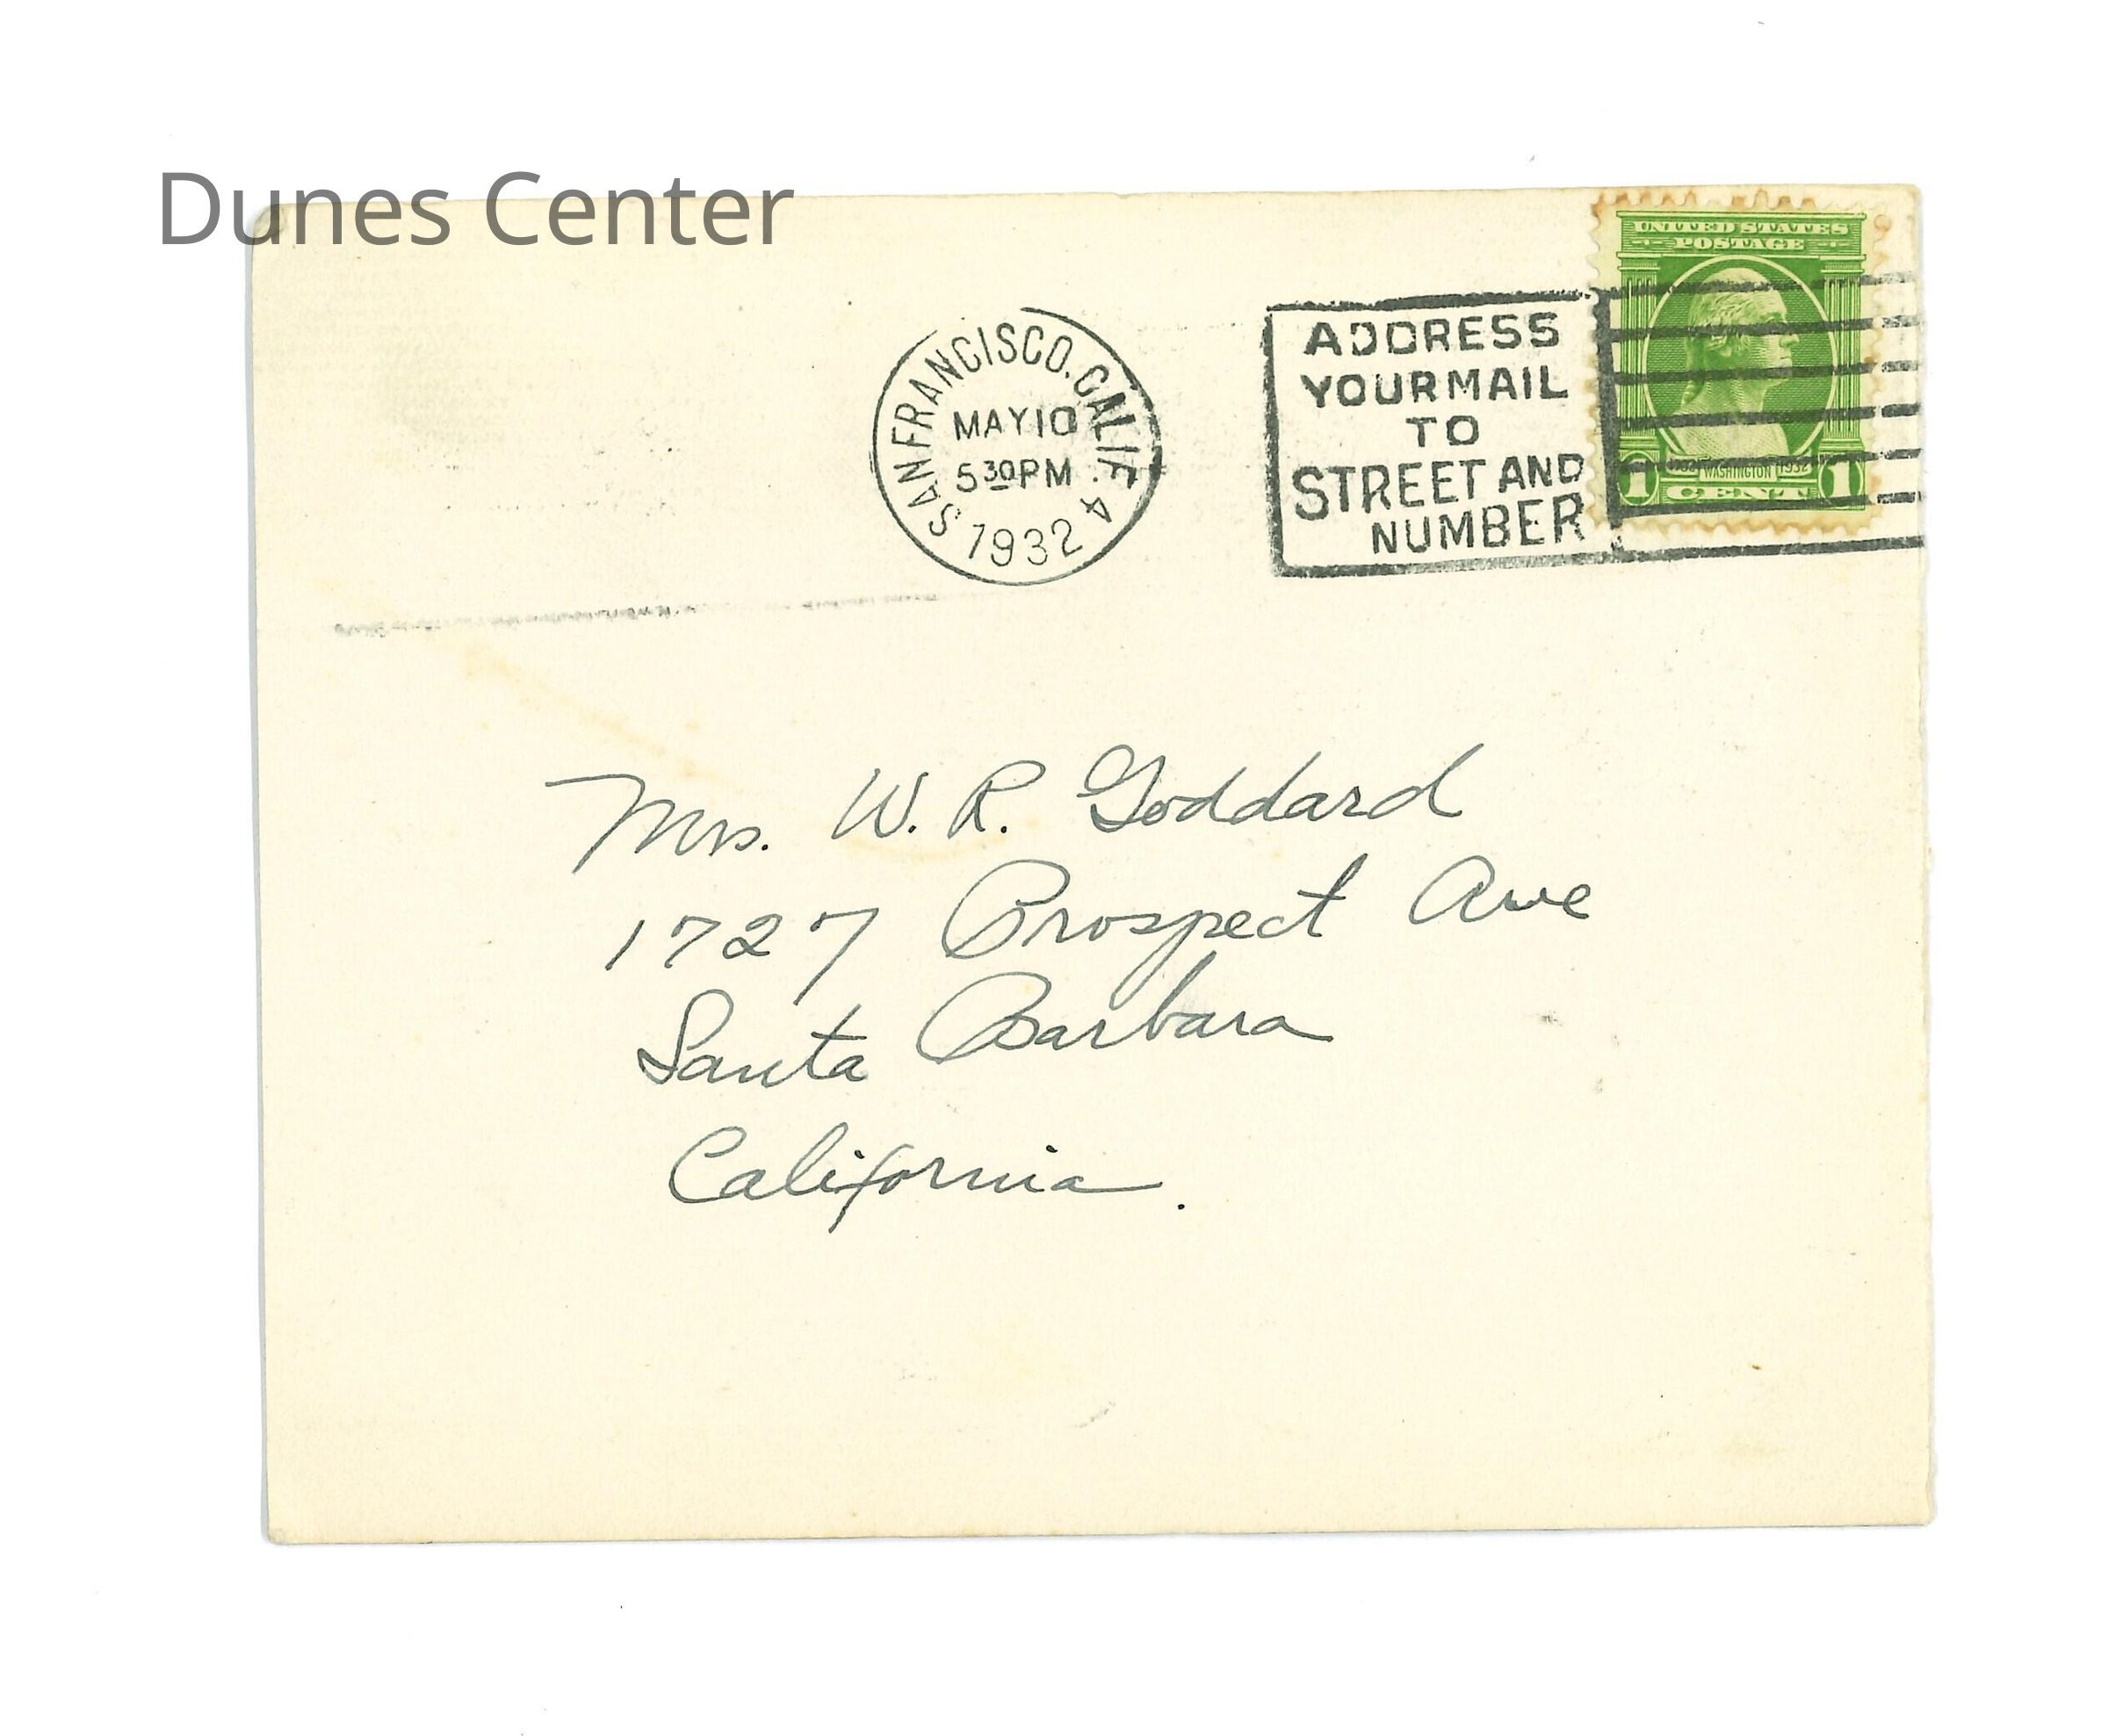 Dunes Center
UNITED STATES
POSTAGE
SAN FRANCISCO, CALIF. 4
MAY 10
5 30 PM
1932
ADDRESS
YOUR MAIL
TO
STREET AND
NUMBER
1732 WASHINGTON 1932
1 CENT 1
Mrs. W. R. Goddard
1727 Prospect Ave
Santa Barbara
California.